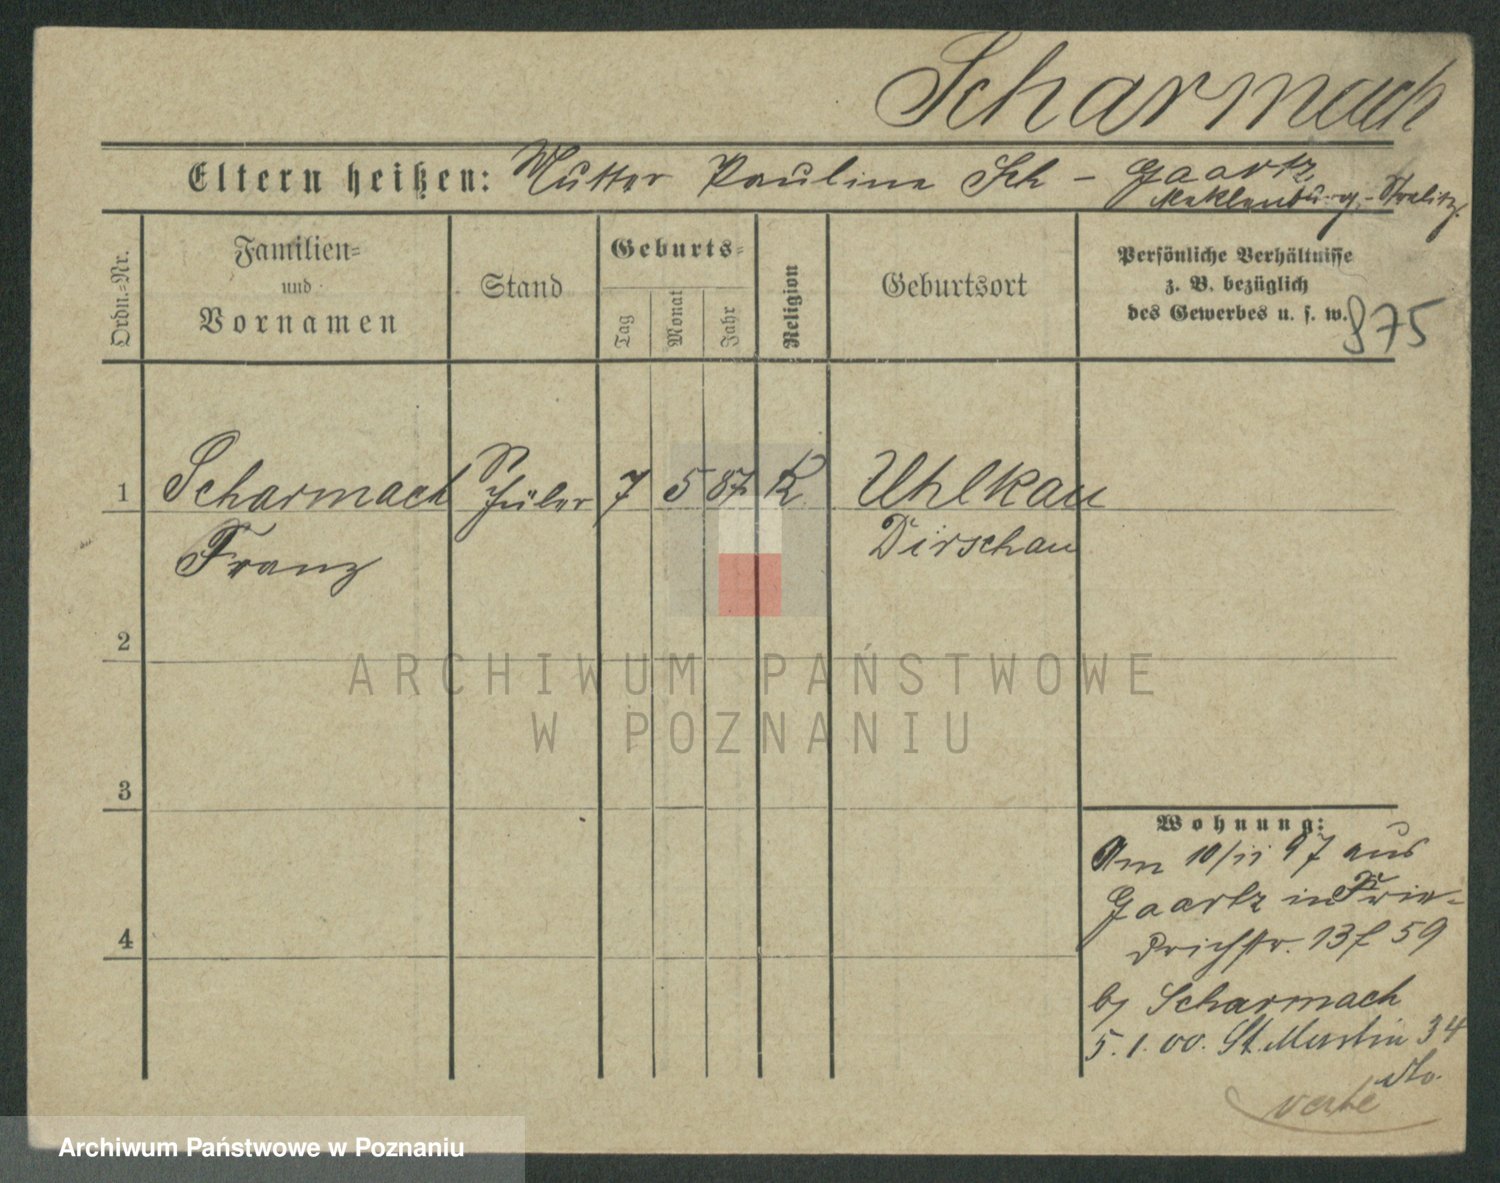 Scharmach
Eltern heißen: Mutter Pauline Sch - Gaartz
Meklenburg-Strelitz.
Ordn.-Nr.
Familien-
und
Vornamen
Stand
Geburts-
Tag
Monat
Jahr
Religion
Geburtsort
Persönliche Verhältnisse
z. B. bezüglich
des Gewerbes u. s. w.
975
1 Scharmach Schüler 7 5 87 K Uhlkau
Franz Dirschau
2
3
4
ARCHIWUM PAŃSTWOWE
W POZNANIU
Wohnung:
Am 10/11 97 aus
Gaartz in Frie-
drichstr. 13 f 59
bj Scharmach
5.1.00. St. Martin 34
dto.
verte
Archiwum Państwowe w Poznaniu